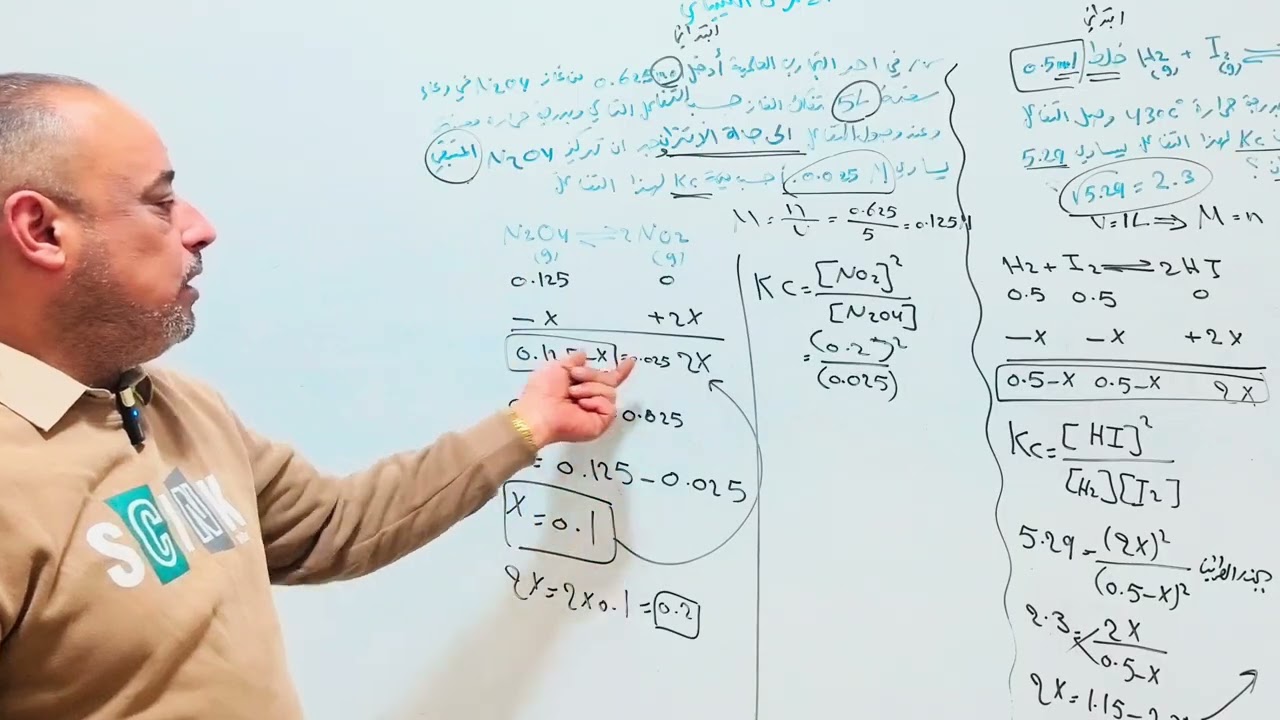 ابتدائي
في احد التجارب العلمية أدخل 0.625 mol من غاز N2O4 في وعاء
سعته 5L تفكك الغاز حسب التفاعل التالي وبدرجة حرارة معينة
وعند وصول التفاعل الى حالة الاتزان وجد ان تركيز N2O4 المتبقي
يساوي 0.025 M احسب قيمة Kc لهذا التفاعل
M = n/V = 0.625/5 = 0.125M
N2O4 ⇌ 2NO2
(g) (g)
0.125 0
-X +2X
0.125-X = 0.025 2X
0.025
= 0.125 - 0.025
X = 0.1
2X = 2X0.1 = 0.2
Kc = [NO2]²/[N2O4]
= (0.2)²/(0.025)
ابتدائي
0.5 mol خلط H2 + I2 ⇌
(g) (g)
درجة حرارة 430c° وصل التفاعل
Kc لهذا التفاعل يساوي 5.29
؟
√5.29 = 2.3
V=1L ⇒ M = n
H2 + I2 ⇌ 2HI
0.5 0.5 0
-X -X +2X
0.5-X 0.5-X 2X
Kc = [HI]²/[H2][I2]
5.29 = (2X)²/(0.5-X)² بجذر الطرفين
2.3 = 2X/0.5-X
2X = 1.15 -
SCINK